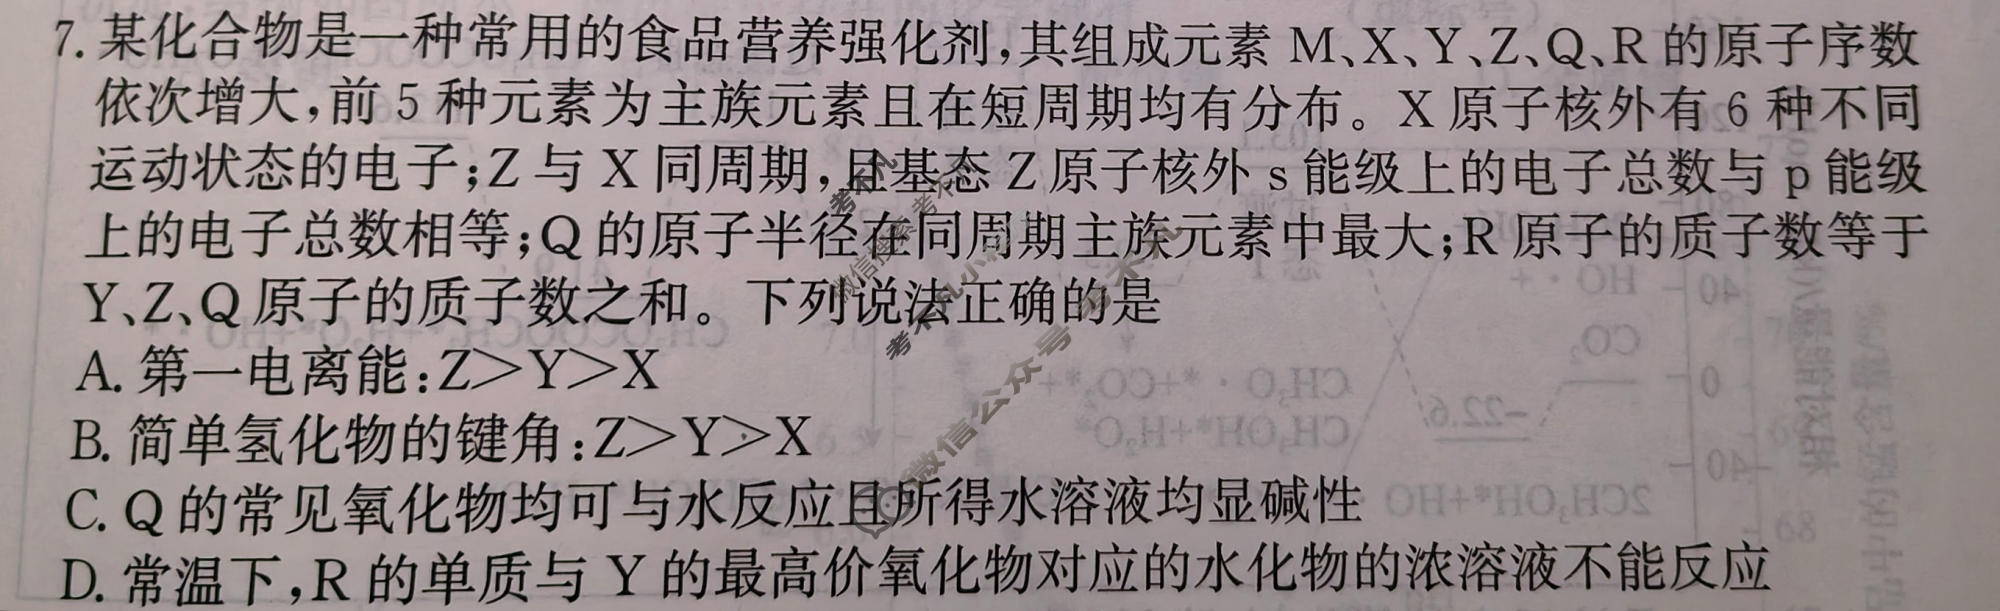 7. 某化合物是一种常用的食品营养强化剂,其组成元素 M、X、Y、Z、Q、R 的原子序数
依次增大,前 5 种元素为主族元素且在短周期均有分布。X 原子核外有 6 种不同
运动状态的电子;Z 与 X 同周期,且基态 Z 原子核外 s 能级上的电子总数与 p 能级
上的电子总数相等;Q 的原子半径在同周期主族元素中最大;R 原子的质子数等于
Y、Z、Q 原子的质子数之和。下列说法正确的是
A. 第一电离能:Z>Y>X
B. 简单氢化物的键角:Z>Y>X
C. Q 的常见氧化物均可与水反应且所得水溶液均显碱性
D. 常温下,R 的单质与 Y 的最高价氧化物对应的水化物的浓溶液不能反应